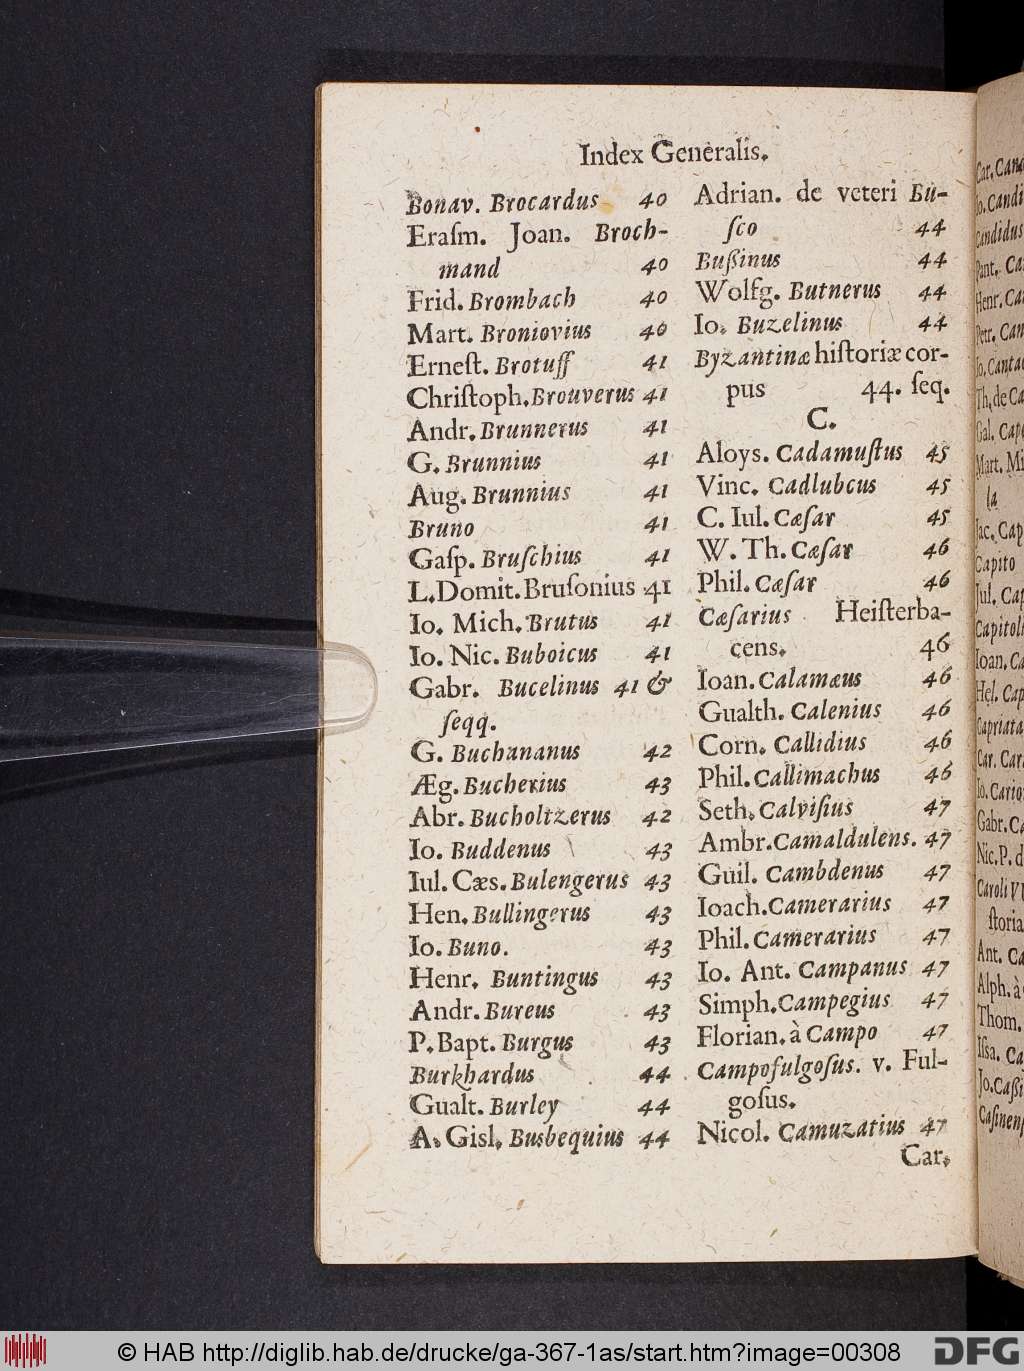 Index Generalis.
Bonav. Brocardus 40
Eraſm. Joan. Broch-
mand 40
Frid. Brombach 40
Mart. Broniovius 40
Erneſt. Brotuff 41
Chriſtoph. Brouverus 41
Andr. Brunnerus 41
G. Brunnius 41
Aug. Brunnius 41
Bruno 41
Gaſp. Bruſchius 41
L. Domit. Bruſonius 41
Io. Mich. Brutus 41
Io. Nic. Buboicus 41
Gabr. Bucelinus 41 &
ſeqq.
G. Buchananus 42
Æg. Bucherius 43
Abr. Bucholtzerus 42
Io. Buddenus 43
Iul. Cæs. Bulengerus 43
Hen. Bullingerus 43
Io. Buno. 43
Henr. Buntingus 43
Andr. Bureus 43
P. Bapt. Burgus 43
Burkhardus 44
Gualt. Burley 44
A. Gisl. Busbequius 44
Adrian. de veteri Bu-
ſco 44
Bußinus 44
Wolfg. Butnerus 44
Io. Buzelinus 44
Byzantinæ hiſtoriæ cor-
pus 44. ſeq.
C.
Aloys. Cadamuſtus 45
Vinc. Cadlubcus 45
C. Iul. Cæſar 45
W. Th. Cæſar 46
Phil. Cæſar 46
Cæſarius Heiſterba-
cens. 46
Ioan. Calamæus 46
Gualth. Calenius 46
Corn. Callidius 46
Phil. Callimachus 46
Seth. Calviſius 47
Ambr. Camaldulens. 47
Guil. Cambdenus 47
Ioach. Camerarius 47
Phil. Camerarius 47
Io. Ant. Campanus 47
Simph. Campegius 47
Florian. à Campo 47
Campofulgoſus. v. Ful-
goſus.
Nicol. Camuzatius 47
Car.
Car.
Io. Candi
Candidus
Pant.
Henr.
Petr.
Io.
Th. de
Gal.
Mart.
la
Jac. Cap
Capito
Jul. Cap
Ioan.
Hel. Cap
Capriata
Car. Car
Io. Cario
Gabr.
Nic. P. d
Caroli
ſtoria
Ant.
Alph. à
Thom.
Iſſa.
© HAB http://diglib.hab.de/drucke/ga-367-1as/start.htm?image=00308
DFG